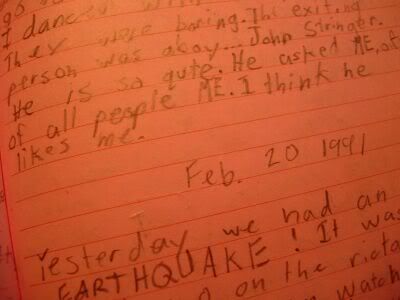 I danced with
They were boring. The exiting
person was a boy... John Stringer.
He is so qute. He asked ME, of
of all people ME. I think he
likes me.
Feb. 20 1991
Yesterday we had an
EARTHQUAKE! It was
on the ricto
watch